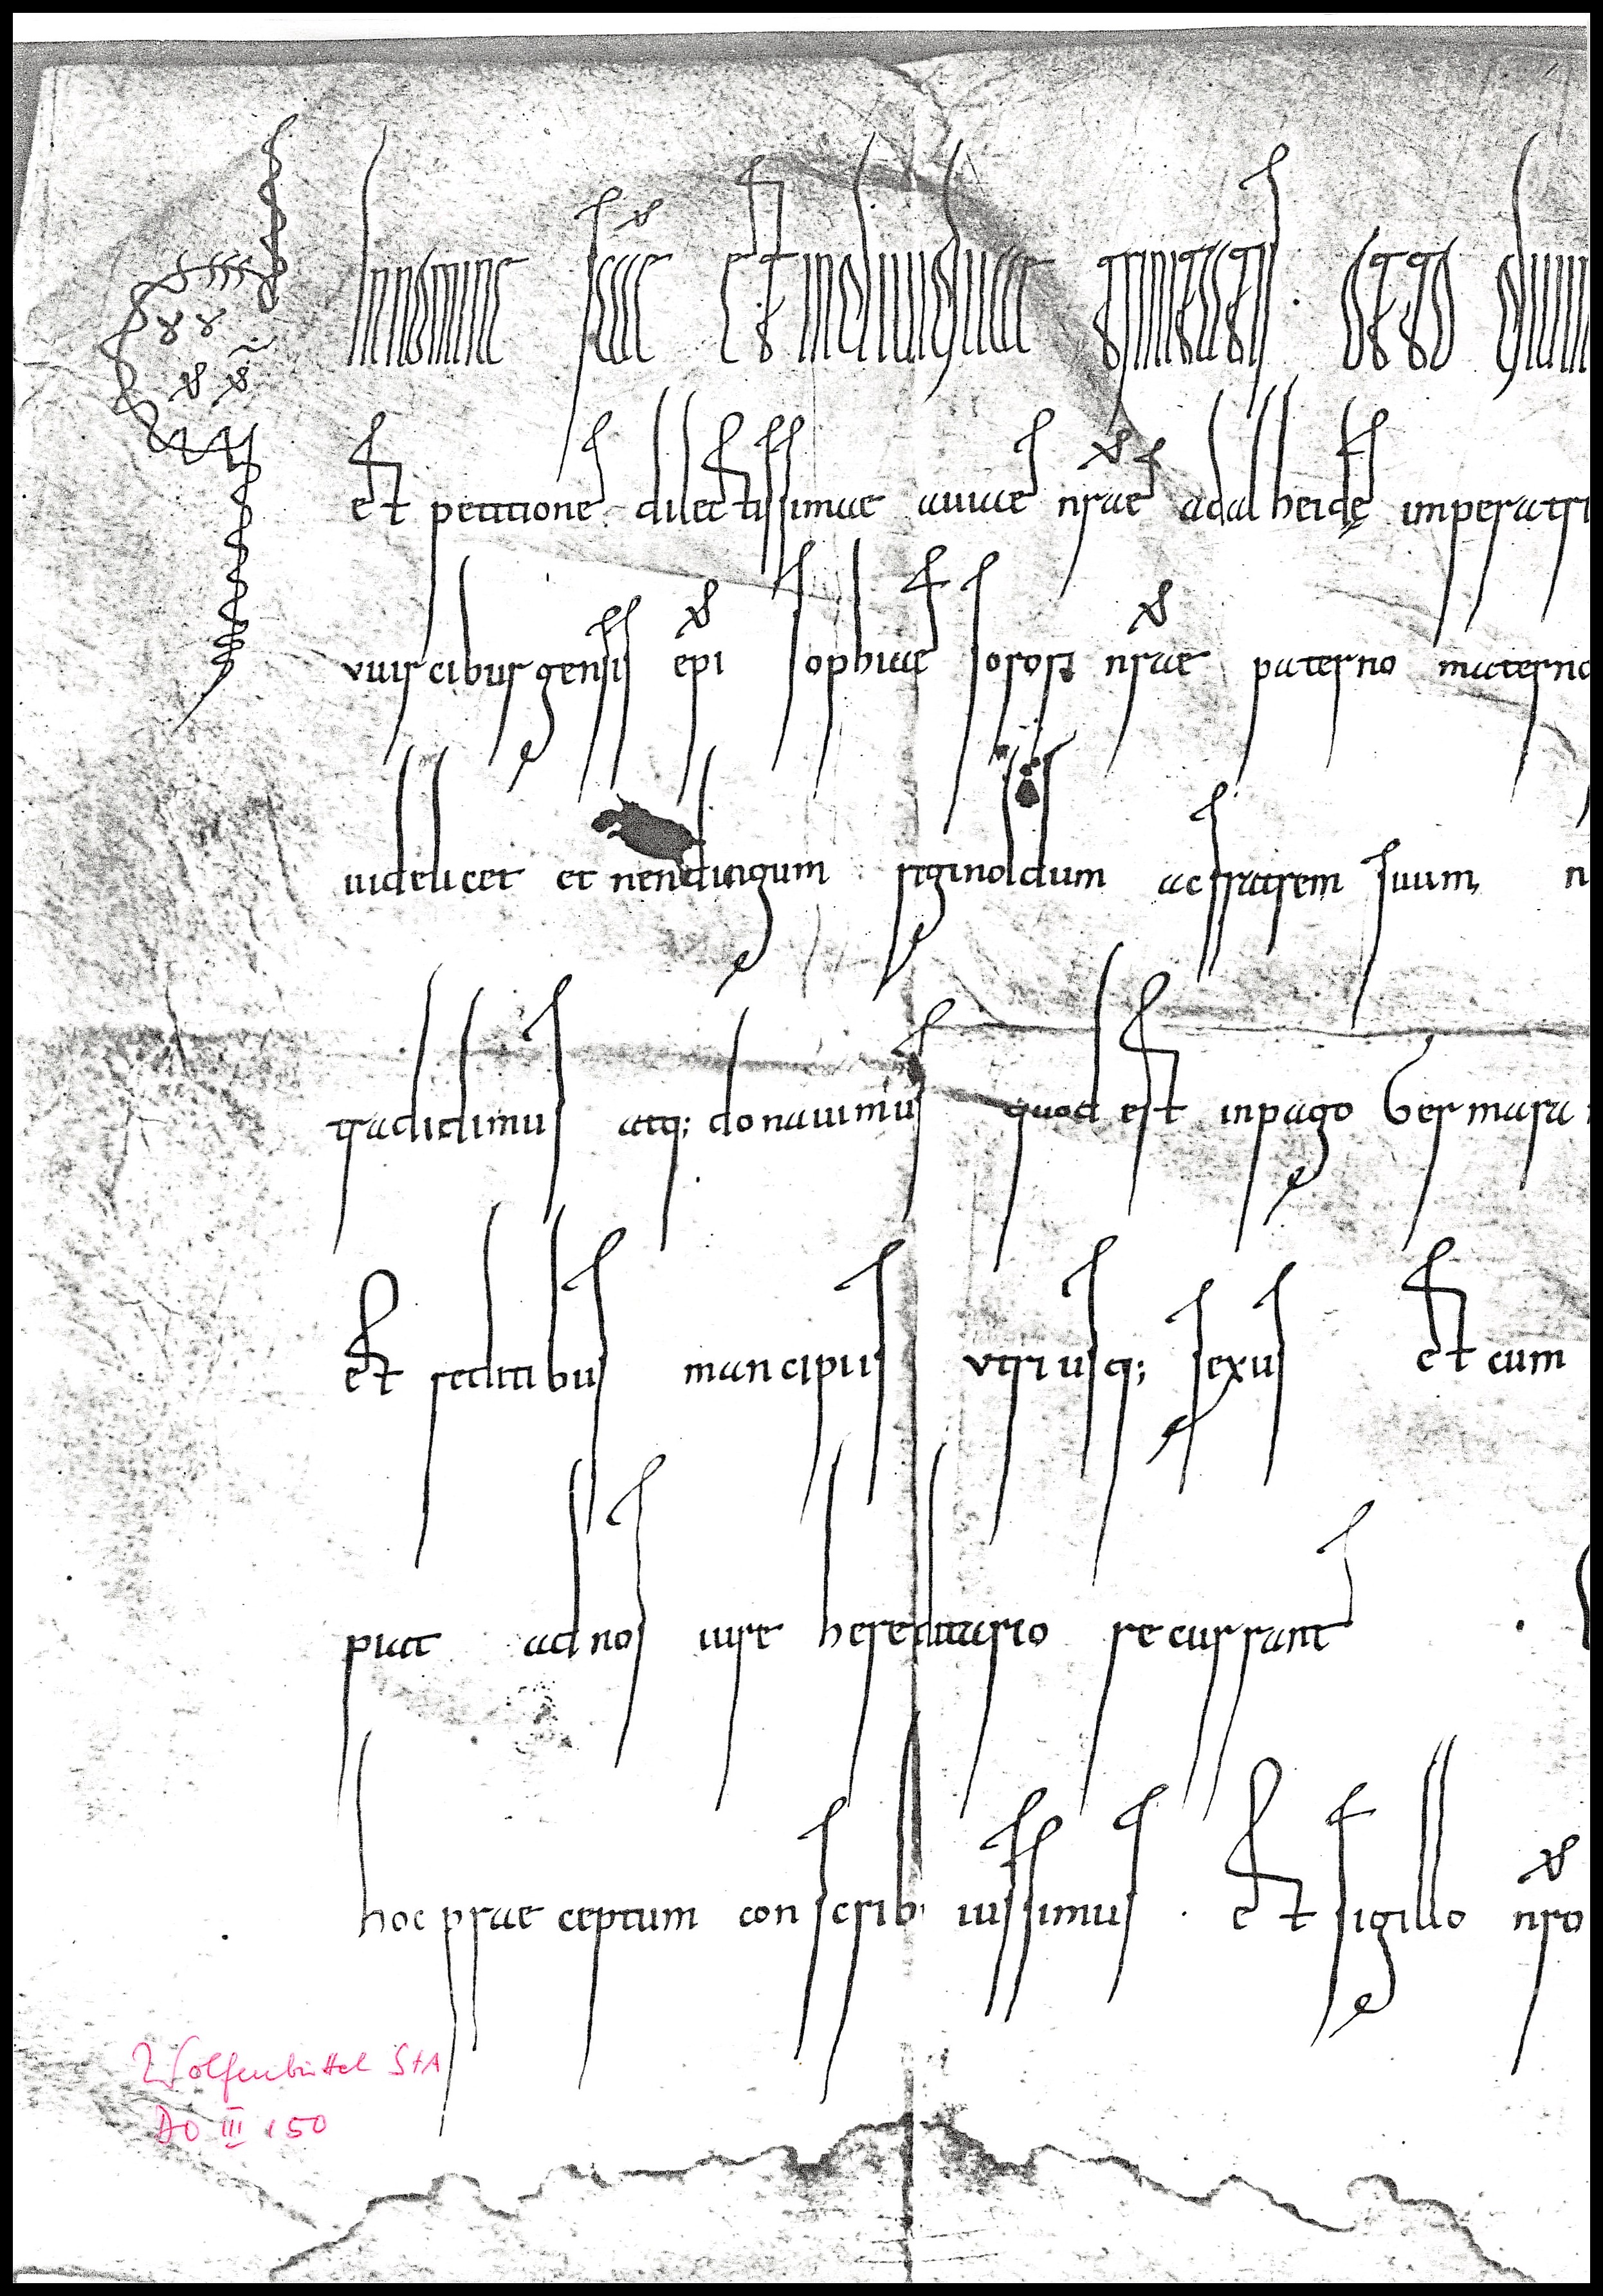 In nomine scae et indiuiduae trinitatis. otto diuin
et petitione dilectissimae auiae nrae adalheidę imperatri
vuirciburgensis epi sophiae soror nrae paterno materno
uidelicet et nendingum reginoldum ac fratrem suum, n
tradidimus atq; donauimus quod est in pago Germara
et reditibus mancipiis vtriusq; sexus et cum
piat ad nos iure hereditario recurrant .
hoc praeceptum conscribi iussimus . et sigillo nro
Wolfenbüttel StA
DO III 150